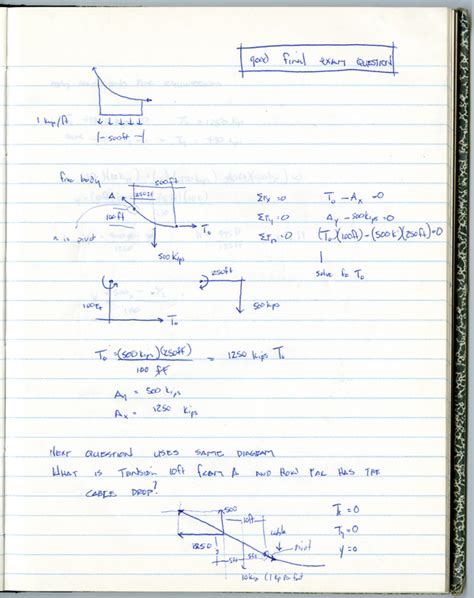 good final exam question
1 kip/ft.
500ft
free body
500ft
250ft
A
100ft
T₀
a is pivot
500 kips
ΣFx = 0 T₀ - Ax = 0
ΣFy = 0 Ay - 500kips = 0
ΣFm = 0 (T₀)(100ft) - (500k)(250ft) = 0
solve for T₀
250ft
100ft
T₀
500kips
T₀ = (500kips)(250ft) = 1250 kips T₀
100 ft
Ay = 500 kips
Ax = 1250 kips
Next question uses same diagram
What is tension 10ft from A and how far has the
cable drop?
500
10ft
cable
1250
pivot
5ft
5ft
10kip (1 kip per foot
Tx = 0
Ty = 0
y = 0